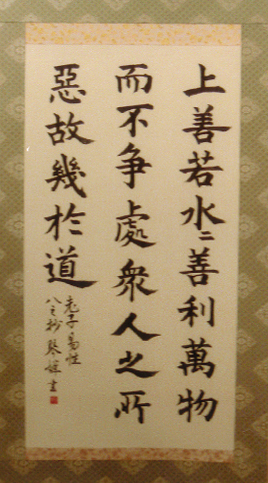 上善若水〻善利萬物
而不争處衆人之所
惡故幾於道
老子易性
八之抄 琴